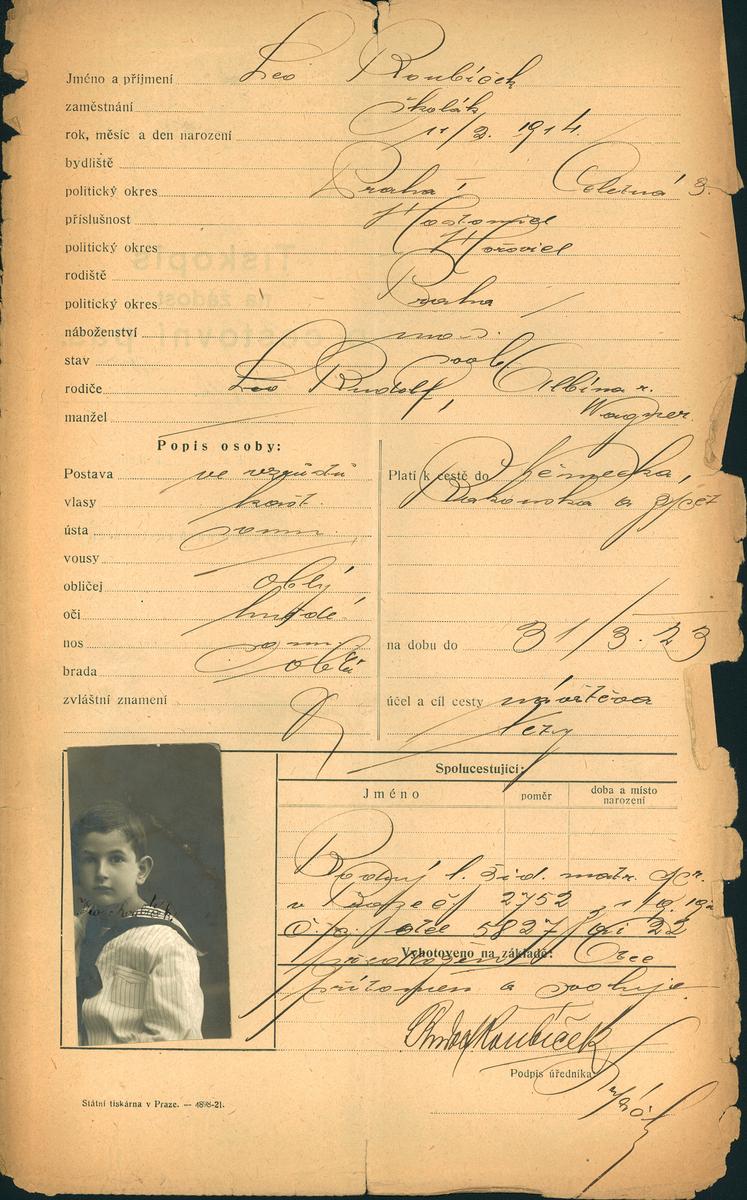 Jméno a příjmení Leo Roubíček
zaměstnání školák
rok, měsíc a den narození 11/2. 1914.
bydliště
politický okres Praha I Celetná 3.
příslušnost Hostomice
politický okres Hořovice
rodiště
politický okres Praha
náboženství mos.
stav svob.
rodiče Leo Rudolf, Albína r.
manžel Wagner.
Popis osoby:
Postava ve vzrůstu
vlasy kašt.
ústa
vousy
obličej oblý
oči hnědé
nos
brada oblá
zvláštní znamení
Platí k cestě do Německa,
Rakouska a zpět
na dobu do 31/3. 23
účel a cíl cesty návštěva
Spolucestující:
Jméno
poměr
doba a místo
narození
Rodný l. žid. matr. úř.
v Praze č. 2752
č. p. otce 5827
Vyhotoveno na základě:
Otec
přítomen a svoluje.
Rudolf Roubíček
Podpis úředníka:
Leo Roubíček
Státní tiskárna v Praze. — 1898-21.